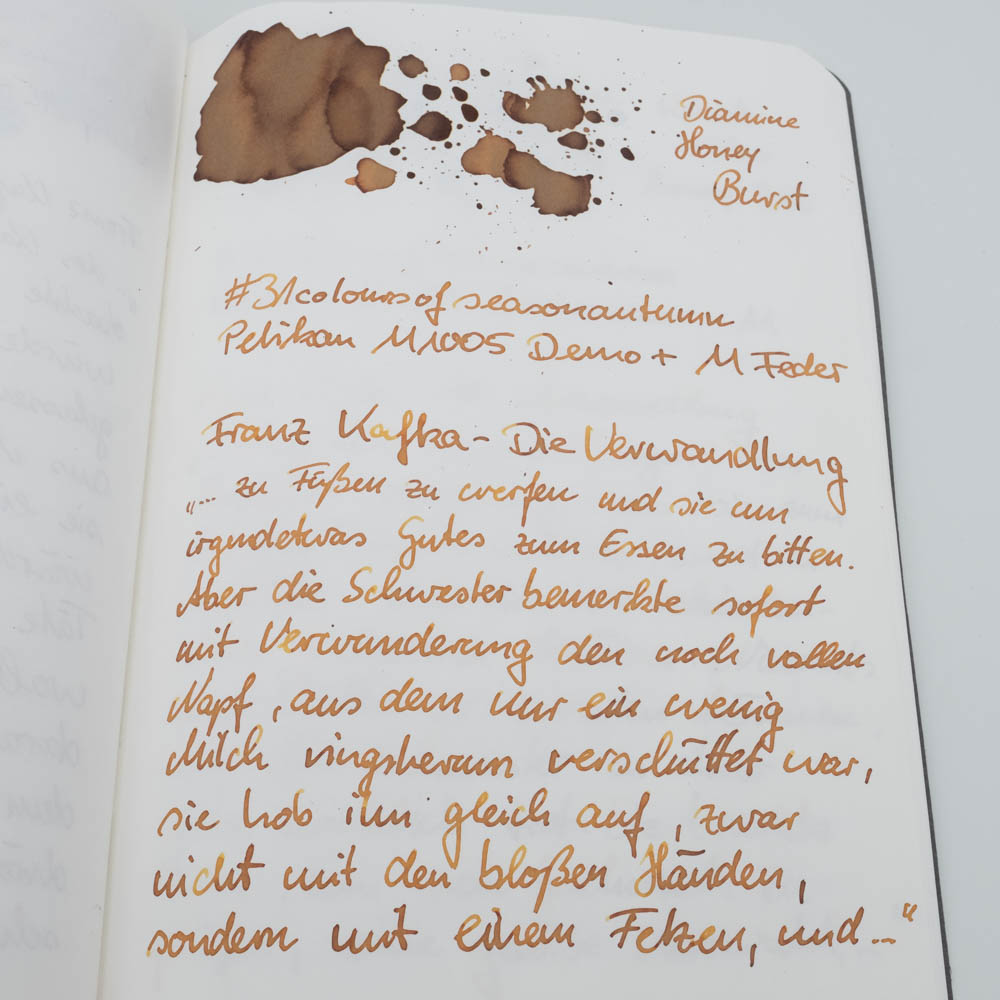 Diamine
Honey
Burst
#31coloursofseasonautumn
Pelikan M1005 Demo + M Feder
Franz Kafka - Die Verwandlung
„... zu Füßen zu werfen und sie um
irgendetwas Gutes zum Essen zu bitten.
Aber die Schwester bemerkte sofort
mit Verwunderung den noch vollen
Napf, aus dem nur ein wenig
Milch ringsherum verschüttet war,
sie hob ihn gleich auf, zwar
nicht mit den bloßen Händen,
sondern mit einem Fetzen, und ...“